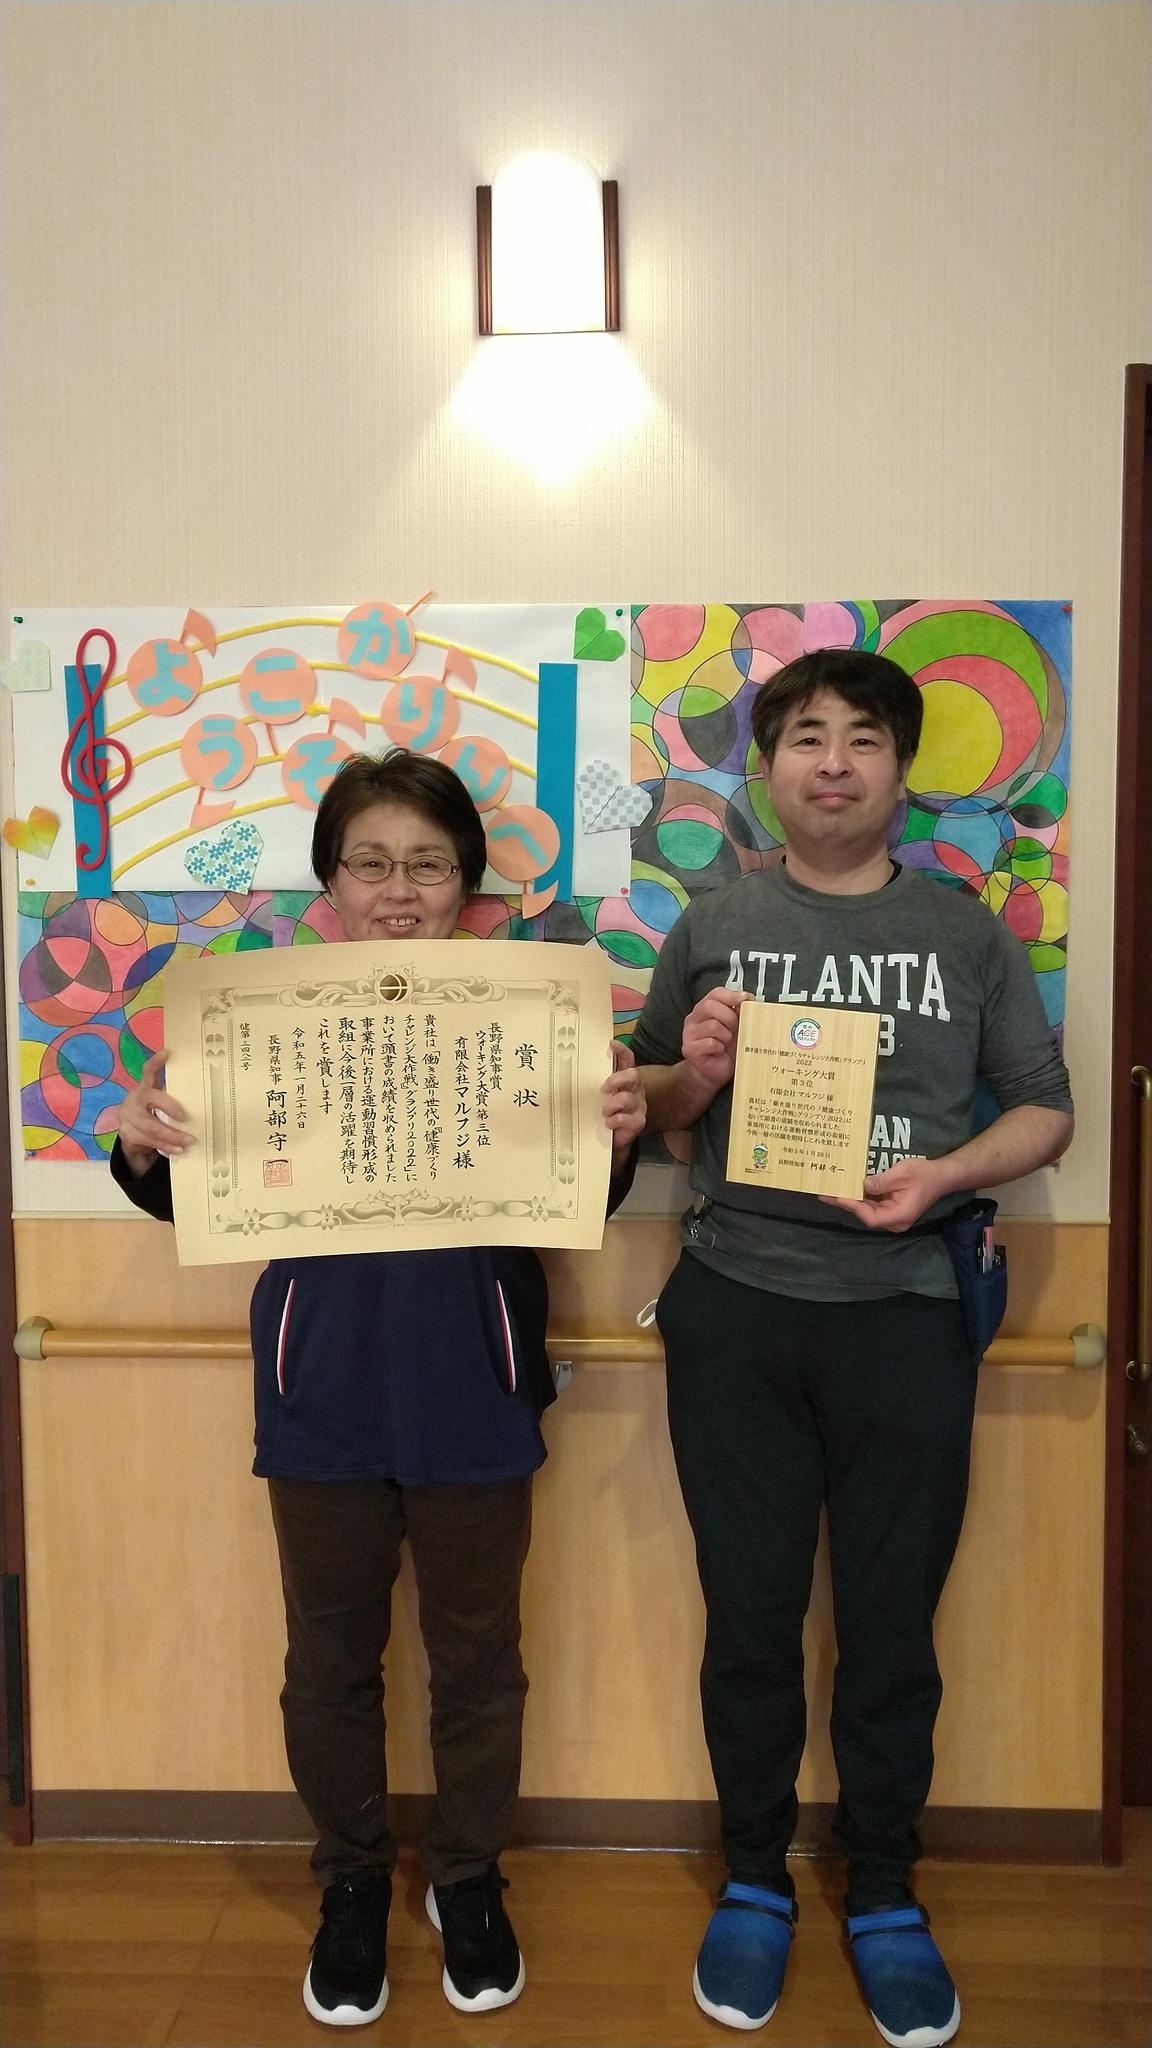 ようこそ
かりんへ
賞状
長野県知事賞
ウォーキング大賞 第三位
有限会社マルフジ様
貴社は「働き盛り世代の『健康づくり
チャレンジ大作戦』グランプリ2022」に
おいて頭書の成績を収められました
事業所における運動習慣形成の
取組に今後一層の活躍を期待し
これを賞します
令和五年一月二十六日
長野県知事 阿部守一
健第三四八二号
ATLANTA
信州
ACE
プロジェクト
働き盛り世代の「健康づくりチャレンジ大作戦」グランプリ
2022
ウォーキング大賞
第3位
有限会社 マルフジ 様
貴社は「働き盛り世代の「健康づくり
チャレンジ大作戦」グランプリ2022」に
おいて頭書の成績を収められました
事業所における運動習慣形成の取組に
今後一層の活躍を期待しこれを賞します
令和5年1月26日
長野県知事 阿部 守一